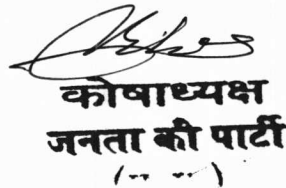 कोषाध्यक्ष
जनता की पार्टी